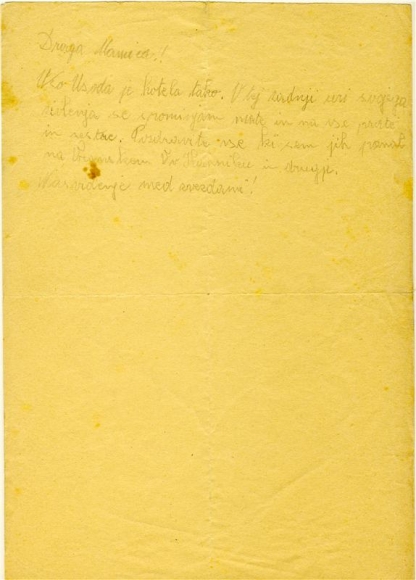 Draga Mamica!!
Ako Usoda je hotela tako. V tej zadnji uri svojega
življenja se spominjam nate in na vse brate
in sestre. Pozdravite vse ki sem jih poznal
na                in drugje.
Nasvidenje med zvezdami!